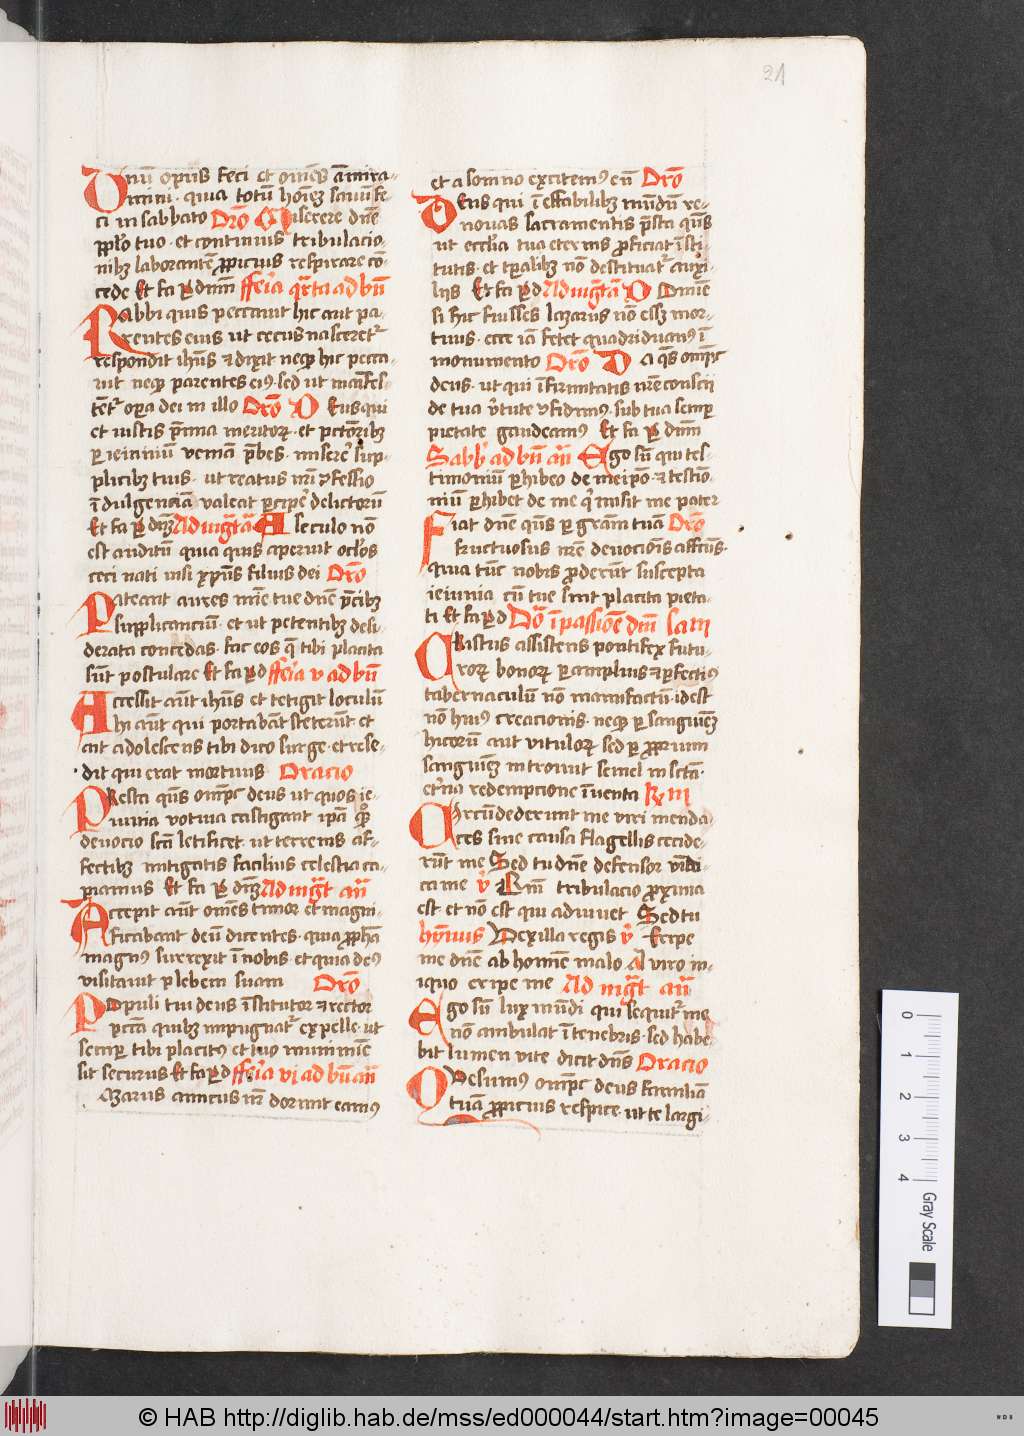 21
Unū opus feci et om̄es am̄ira-
mini · quia totū hoīeꝫ sanū fe-
ci in sabbato Orō Miserere dn̄e
pp̄lo tuo · et continuis tribulacio-
nibꝫ laborantē ꝓpicius respirare cō-
cede Et fa ꝑ dnm̄ ffeīa qr̄ta ad bn̄
Rabbi quis peccauit hic aut pa-
rentes eius ut cecus nasceretᷣ
respondit ihūs et dixit neqꝫ hic pecca-
uit neqꝫ parentes eiꝰ sed ut manifes-
tetᷣ oꝑa dei in illo Orō Deus qui
et iustis p̄mia meritoꝝ · et pctōribꝫ
ꝑ ieiuniū veniā p̄bes · miserē sup-
plicibꝫ tuis · ut reatus nr̄i ꝯfessio
īdulgenciam valeat ꝑcipe delictorū
Et fa ꝑ dnm̄ Ad mḡtā A seculo nō
est auditū quia quis aperuit oclōs
ceci nati nisi xp̄us filius dei Orō
Pateant aures mīe tue dn̄e p̄cibꝫ
supplicanciū · et ut petentibꝫ desi-
derata concedas · fac eos q̄ tibi placita
sūt postulare Et fa ꝑ d ffeīa v ad bn̄
Accessit aūt ihūs et tetigit loculū
hi aūt qui portabāt steterūt et
ait adolescens tibi dico surge · et rese-
dit qui erat mortuus Oracio
Presta qūs omp̄s deus ut quos ie-
iunia votiua castigant ip̄a qꝫ
deuocio scā letificet · ut terrenis af-
fectibꝫ mitigatis facilius celestia ca-
piamus Et fa ꝑ dnm̄ Ad mḡt an̄
Accepit aūt om̄es timor et magni-
ficabant deū dicentes · quia ꝓphā
magnꝰ surrexit ī nobis · et quia deꝰ
visitauit plebem suam Orō
Populi tui deus īstitutor et rector
pctā quibꝫ impugnatᷣ expelle · ut
semꝑ tibi placitꝰ et tuo munimīe
sit securus Et fa ꝑ d ffeīa vj ad bn̄ an̄
Lazarus amicus nr̄ dormit eamꝰ
et a somno excitemꝰ eū Orō
Deus qui ineffabilibꝫ mūdū re-
nouas sacramentis p̄sta qūs
ut ecclīa tua eternis ꝓficiat īsti-
tutis · et tꝑalibꝫ nō destituatᷣ auxi-
lijs Et fa ꝑ d Ad mḡtā Domīe
si hic fuisses lazarus nō essꝫ mor-
tuus · ecce iā fetet quadriduanꝰ ī
monumento Orō Da qūs omp̄s
deus · ut qui īfirmitatis nr̄e conscij
de tua v̄tute ꝯfidimꝰ · sub tua semꝑ
pietate gaudeamꝰ Et fa ꝑ dnm̄
Sabb ad bn̄ an̄ Ego sū qui tes-
timoniū ꝑhibeo de meipō · et testio-
niū ꝑhibet de me qͥ misit me pater
Fiat dn̄e qūs ꝑ grām tuā Orō
fructuosus nr̄e deuociōis affcūs ·
quia tūc nobis ꝓderūt suscepta
ieiunia cū tue sint placita pieta-
ti Et fa ꝑ d Dō ī passiōe dnī Cam
Cristus assistens pontifex futu-
roꝝ bonoꝝ ꝑ amplius et ꝑfectiꝰ
tabernaculū non manufactū · idest
nō huiꝰ creacionis · neqꝫ ꝑ sanguiēꝫ
hircorū aut vituloꝝ sed ꝑ ꝓprium
sanguiēꝫ introiuit semel in scā ·
et̄na redempcione īuenta Rm
Circūdederunt me viri menda-
ces sine causa flagellis cecide-
rūt me Sed tu dn̄e defensor vīdi-
ca me v̄ Qm̄ tribulacio ꝓxima
est et nō est qui adiuuet Sed tu
hymnus Vexilla regis v̄ Eripe
me dn̄e ab hoīme malo A viro in-
iquo eripe me Ad mḡt an̄
Ego sū lux mūdi qui sequitᷣ me
non ambulat ī tenebris · sed habe-
bit lumen vite dicit dn̄s Oracio
Quesumꝰ omp̄s deus familiā
tuā ꝓpicius respice · ut te largi-
0
1
2
3
4
Gray Scale
© HAB http://diglib.hab.de/mss/ed000044/start.htm?image=00045